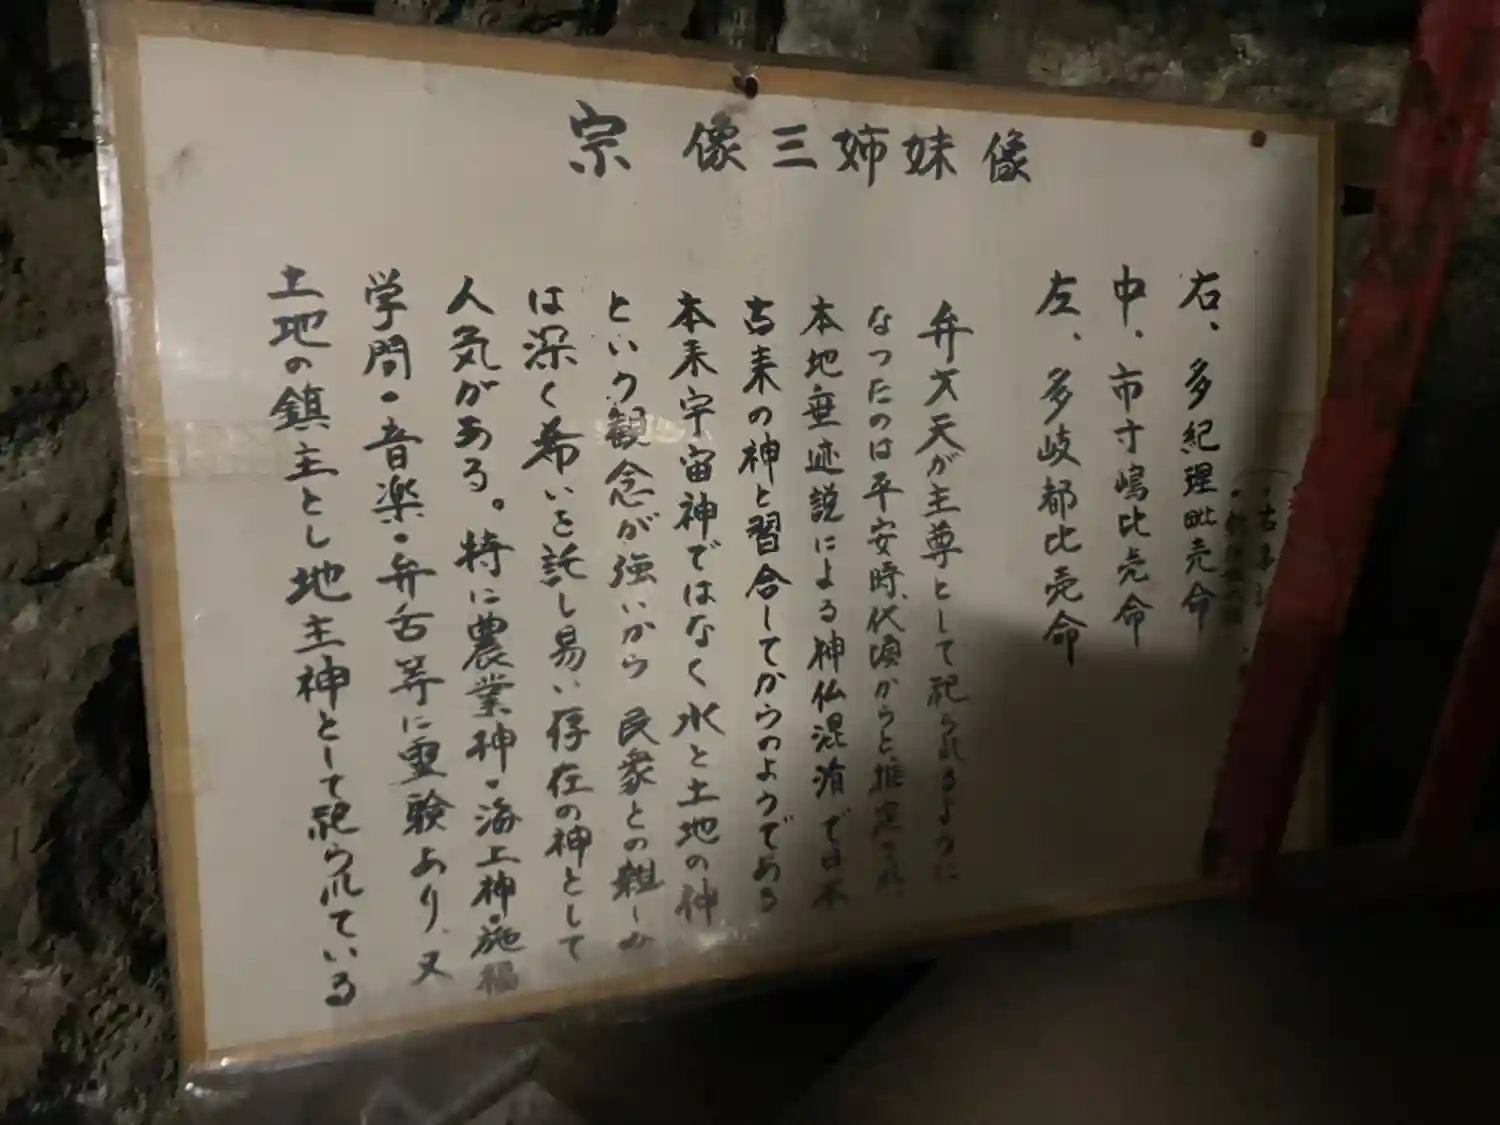 宗像三姉妹像
右、多紀理毗売命
中、市寸嶋比売命
左、多岐都比売命
弁才天が主尊として祀られるように
なったのは平安時代頃からと推定され、
本地垂迹説による神仏混淆で日本
古来の神と習合してからのようである
本来宇宙神ではなく水と土地の神
という観念が強いから民衆との親しみ
は深く希いを託し易い存在の神として
人気がある。特に農業神・海上神・施福
学問・音楽・弁舌等に霊験あり、又
土地の鎮主とし地主神として祀られている